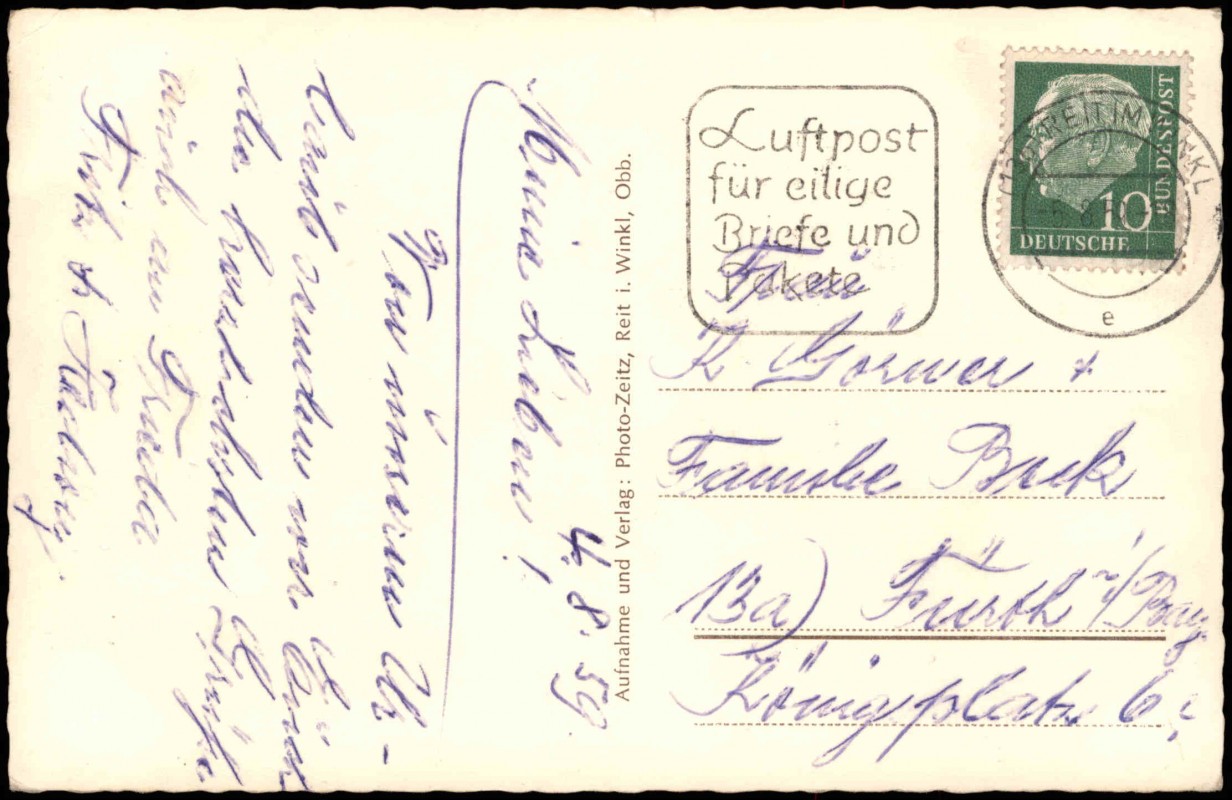 4. 8. 59
Meine Lieben!
Von unserem Ur-
laub senden wir Euch
die herzlichsten Grüße
auch an Frieda
Fritz &
Aufnahme und Verlag: Photo-Zeitz, Reit i. Winkl, Obb.
Luftpost
für eilige
Briefe und
Pakete
REIT IM WINKL
e
10
DEUTSCHE
BUNDESPOST
Frau
K. Görner +
Familie
13a) Fürth i/Bay
Königsplatz 6